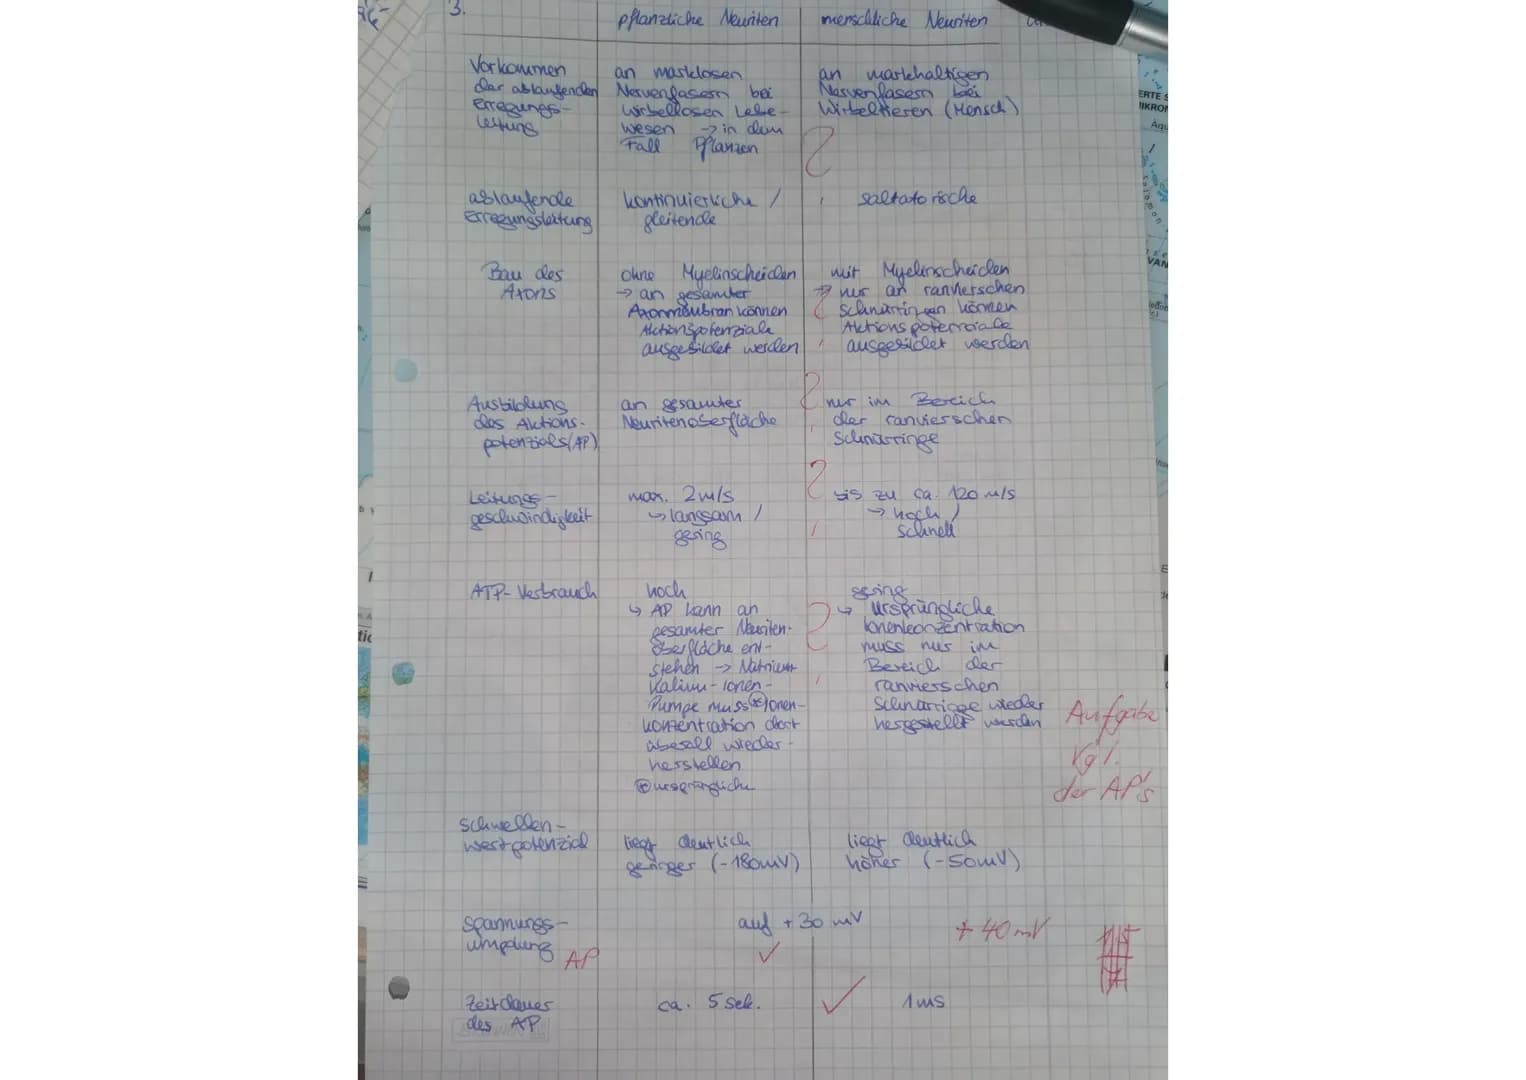 3.
pflanzliche Neuriten menschliche Neuriten
Vorkommen der ablaufenden Erregungs-
leitung
an marklosen
Nervenfasern bei
wirbellosen Lebe-
wesen → in dem
Fall Pflanzen
an markhaltigen
Nervenfasern bei
Wirbeltieren (Mensch)
ablaufende
Erregungsleitung
kontinuierliche /
gleitende
saltatorische
Bau des
Axons
ohne Myelinscheiden
→ an gesamter
Axonmembran können
Aktionspotenziale
ausgebildet werden
mit Myelinscheiden
→ nur an ranvierschen
Schnürringen können
Aktionspotenziale
ausgebildet werden
Ausbildung
des Aktions-
potenzials (AP)
an gesamter
Neuritenoberfläche
nur im Bereich
der ranvierschen
Schnürringe
Leitungs-
geschwindigkeit
max. 2 m/s
↳ langsam /
gering
bis zu ca. 120 m/s
→ hoch /
schnell
ATP-Verbrauch
hoch
↳ AP kann an
gesamter Neuriten-
oberfläche ent-
stehen → Natrium
Kalium-Ionen-
Pumpe muss ⊛ Ionen-
konzentration dort
überall wieder-
herstellen
⊛ ursprüngliche
gering
↳ ursprüngliche
Ionenkonzentration
muss nur im
Bereich der
ranvierschen
Schnürringe wieder
hergestellt werden
Aufgabe
Vgl.
der AP's
Schwellen-
wertpotenzial
liegt deutlich
geringer (-180mV)
liegt deutlich
höher (-50mV)
Spannungs-
umpolung AP
auf +30 mV
+ 40 mV
Zeitdauer
des AP
ca. 5 sek.
1 ms